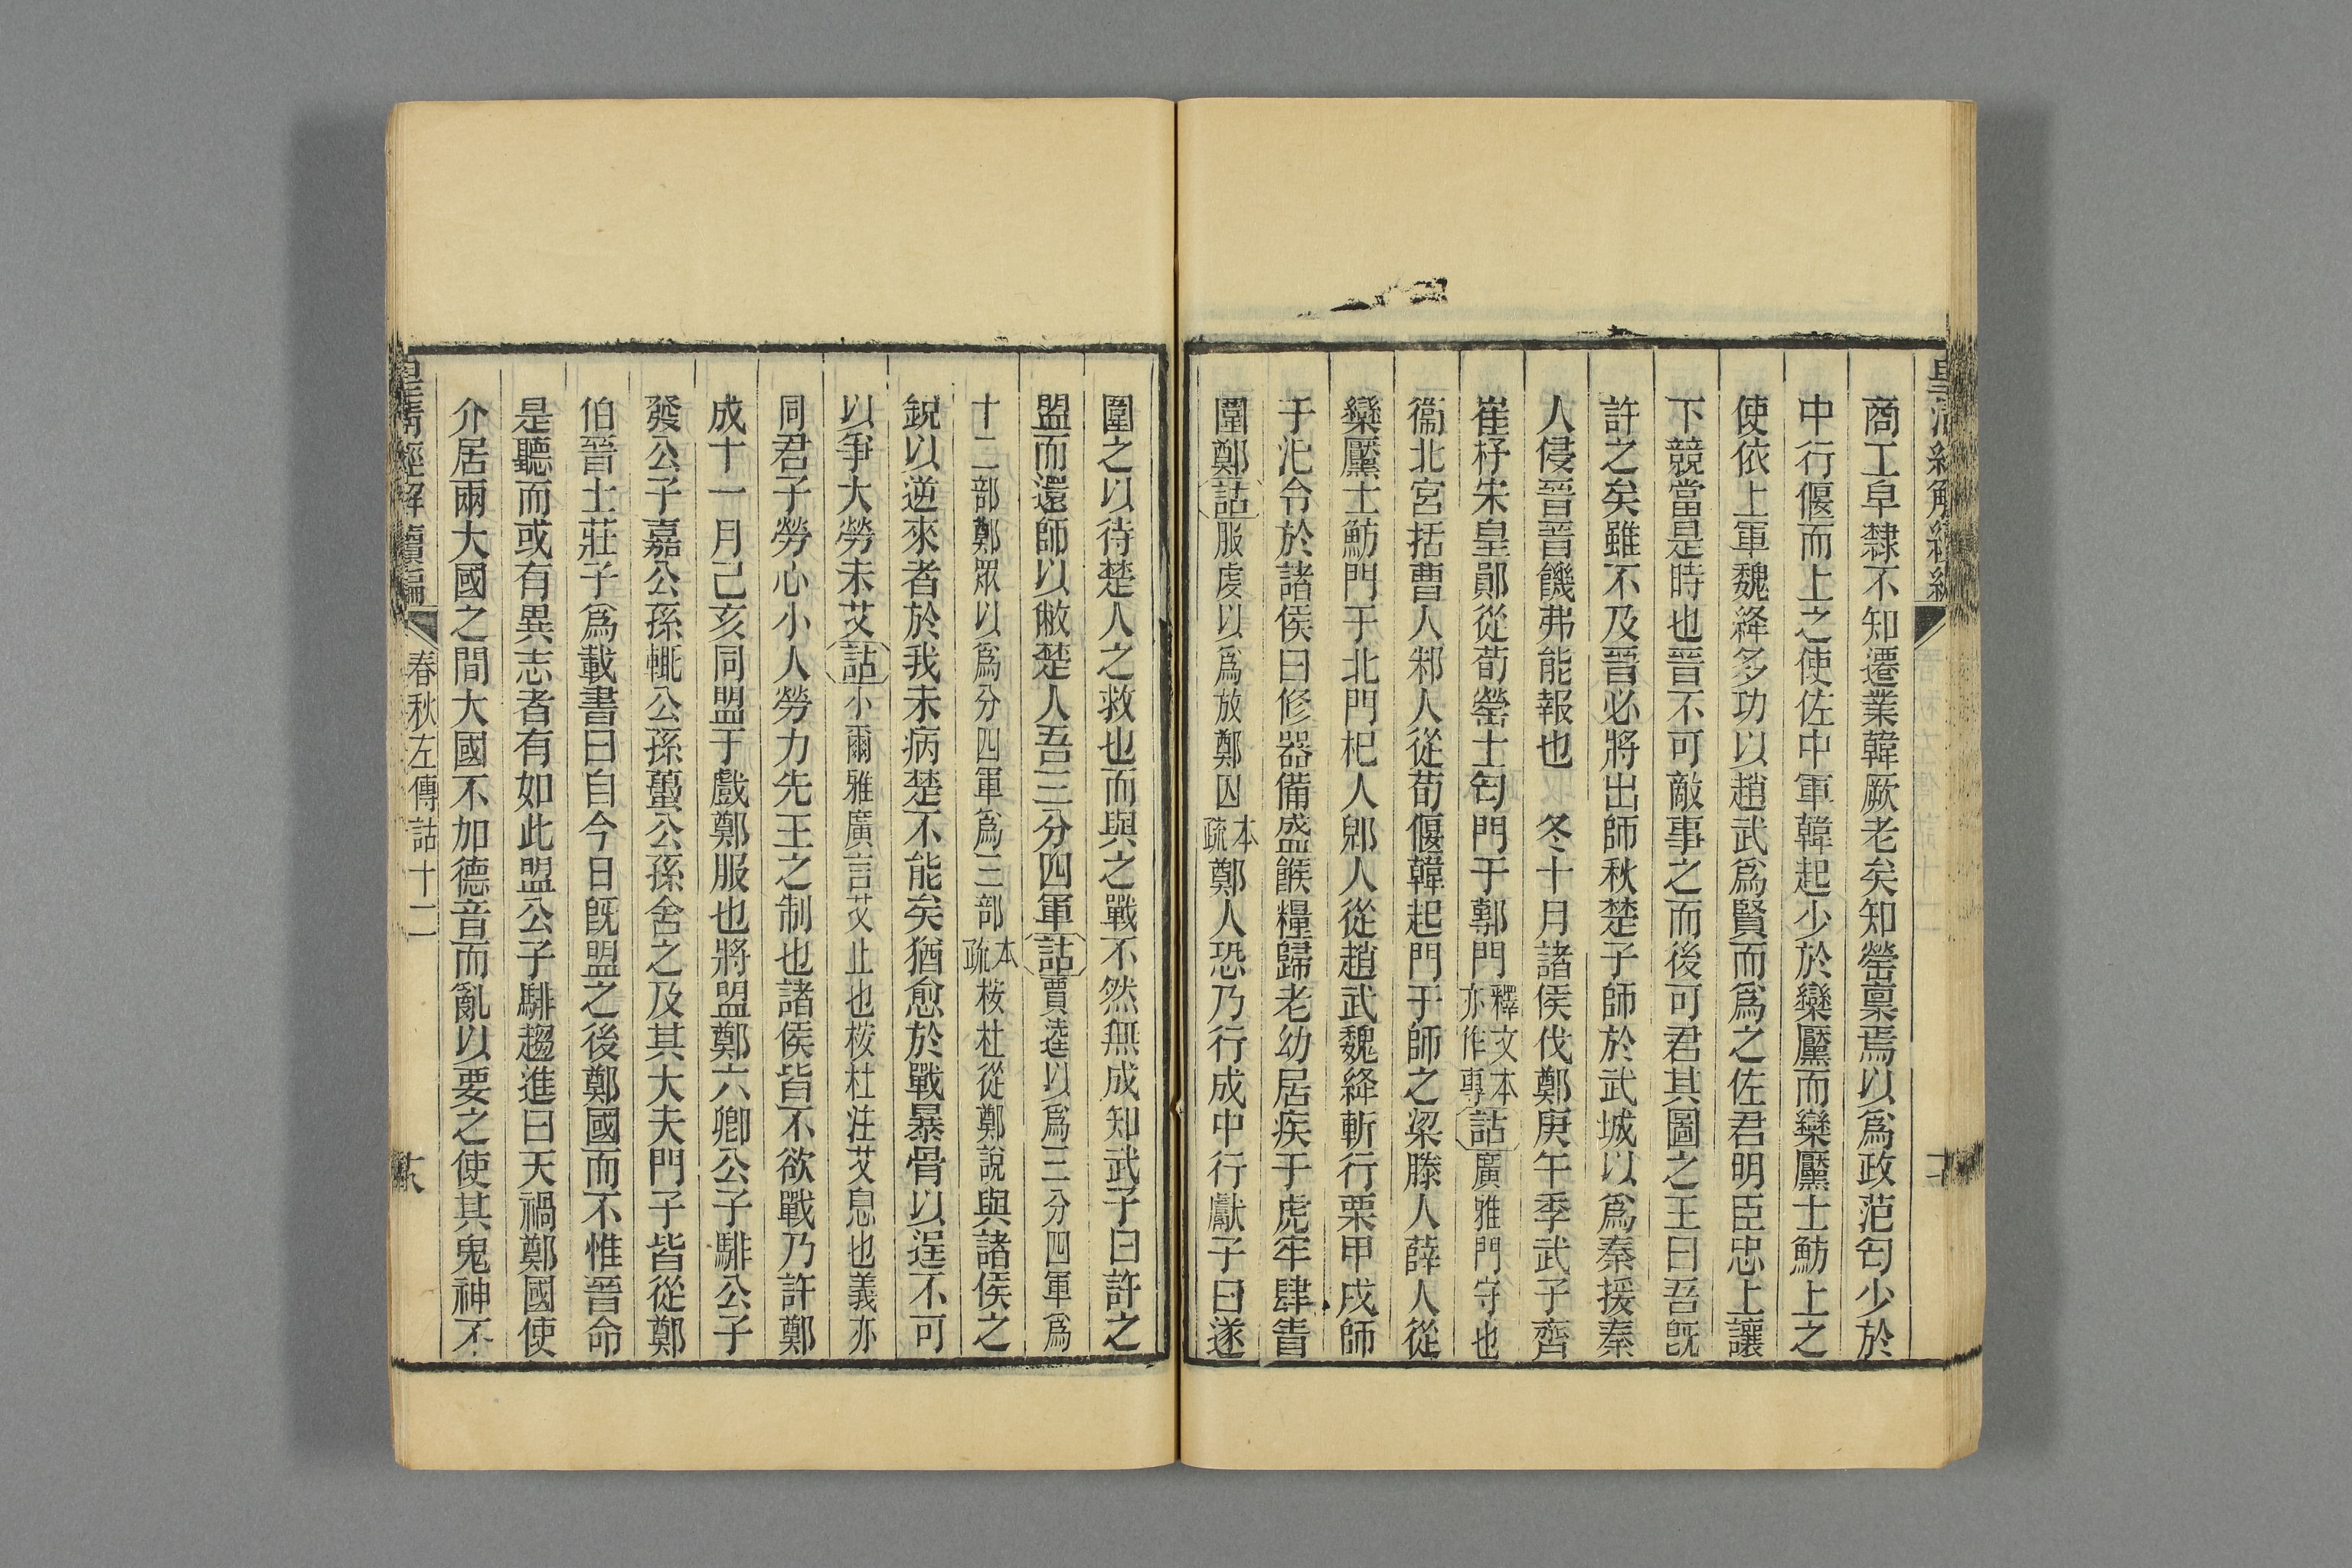 商工皁隸不知遷業韓厥老矣知罃稟焉以爲政范匄少於
中行偃而上之使佐中軍韓起少於欒黶而欒黶士魴上之
使佐上軍魏絳多功以趙武爲賢而爲之佐君明臣忠上讓
下競當是時也晉不可敵事之而後可君其圖之王曰吾旣
許之矣雖不及晉必將出師秋楚子師於武城以爲秦援秦
人侵晉晉饑弗能報也　冬十月諸侯伐鄭庚午季武子齊
崔杼宋皇鄖從荀罃士匄門于鄟門釋文本亦作專詁廣雅門守也
衞北宮括曹人邾人從荀偃韓起門于師之梁滕人薛人從
欒黶士魴門于北門杞人郳人從趙武魏絳斬行栗甲戌師
于汜令於諸侯曰修器備盛餱糧歸老幼居疾于虎牢肆眚
圍鄭詁服虔以爲放鄭囚本疏鄭人恐乃行成中行獻子曰遂
圍之以待楚人之救也而與之戰不然無成知武子曰許之
盟而還師以敝楚人吾三分四軍詁賈逵以爲三分四軍爲
十二部鄭眾以爲分四軍爲三部本疏桉杜從鄭說與諸侯之
銳以逆來者於我未病楚不能矣猶愈於戰暴骨以逞不可
以爭大勞未艾詁小爾雅廣言艾止也桉杜注艾息也義亦
同君子勞心小人勞力先王之制也諸侯皆不欲戰乃許鄭
成十一月己亥同盟于戲鄭服也將盟鄭六卿公子騑公子
發公子嘉公孫輒公孫蠆公孫舍之及其大夫門子皆從鄭
伯晉士莊子爲載書曰自今日旣盟之後鄭國而不惟晉命
是聽而或有異志者有如此盟公子騑趨進曰天禍鄭國使
介居兩大國之間大國不加德音而亂以要之使其鬼神不
皇清經解續編
春秋左傳詁十二